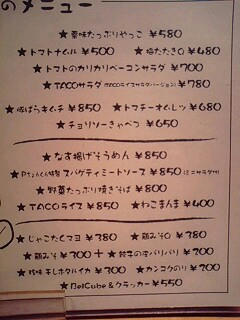 のメニュー
★薬味たっぷりやっこ ¥580
★トマトナムル ¥500 ★梅たたきO ¥480
★トマトのカリカリベーコンサラダ ¥700
★TACOサラダ (TACOライスサラダバージョン) ¥780
★豚ばらキムチ ¥850 ★トマチーオムレツ ¥680
★チョリソーきゃべつ ¥650
★なす揚げそうめん ¥850
特製 スパゲティミートソース ¥850 (ミニサラダ付)
★野菜たっぷり焼きそば ¥800
★TACOライス ¥850 ★ねこまんま ¥400
★じゃこたCマヨ ¥380 ★鶏みそO ¥380
★鶏みそ ¥300 + ★餃子の皮パリパリ ¥200
★珍味 干しホタルイカ ¥300 ★カンコクのり ¥200
★BelCube&クラッカー ¥550